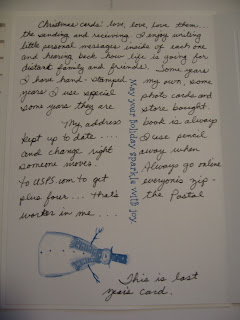 Christmas cards! love, love, love them...
the sending and receiving. I enjoy writing
little personal messages inside of each one
and hearing back how life is going for
distant family and friends. Some years
I have hand-stamped my own, some
years I use special photo cards and
some years they are store bought.
My address book is always
kept up to date.... I use pencil
and change right away when
someone moves. Always go online
to USPS.com to get everyone's zip-
plus four... that's the Postal
worker in me....
May your holiday sparkle with joy.
This is last
years card.